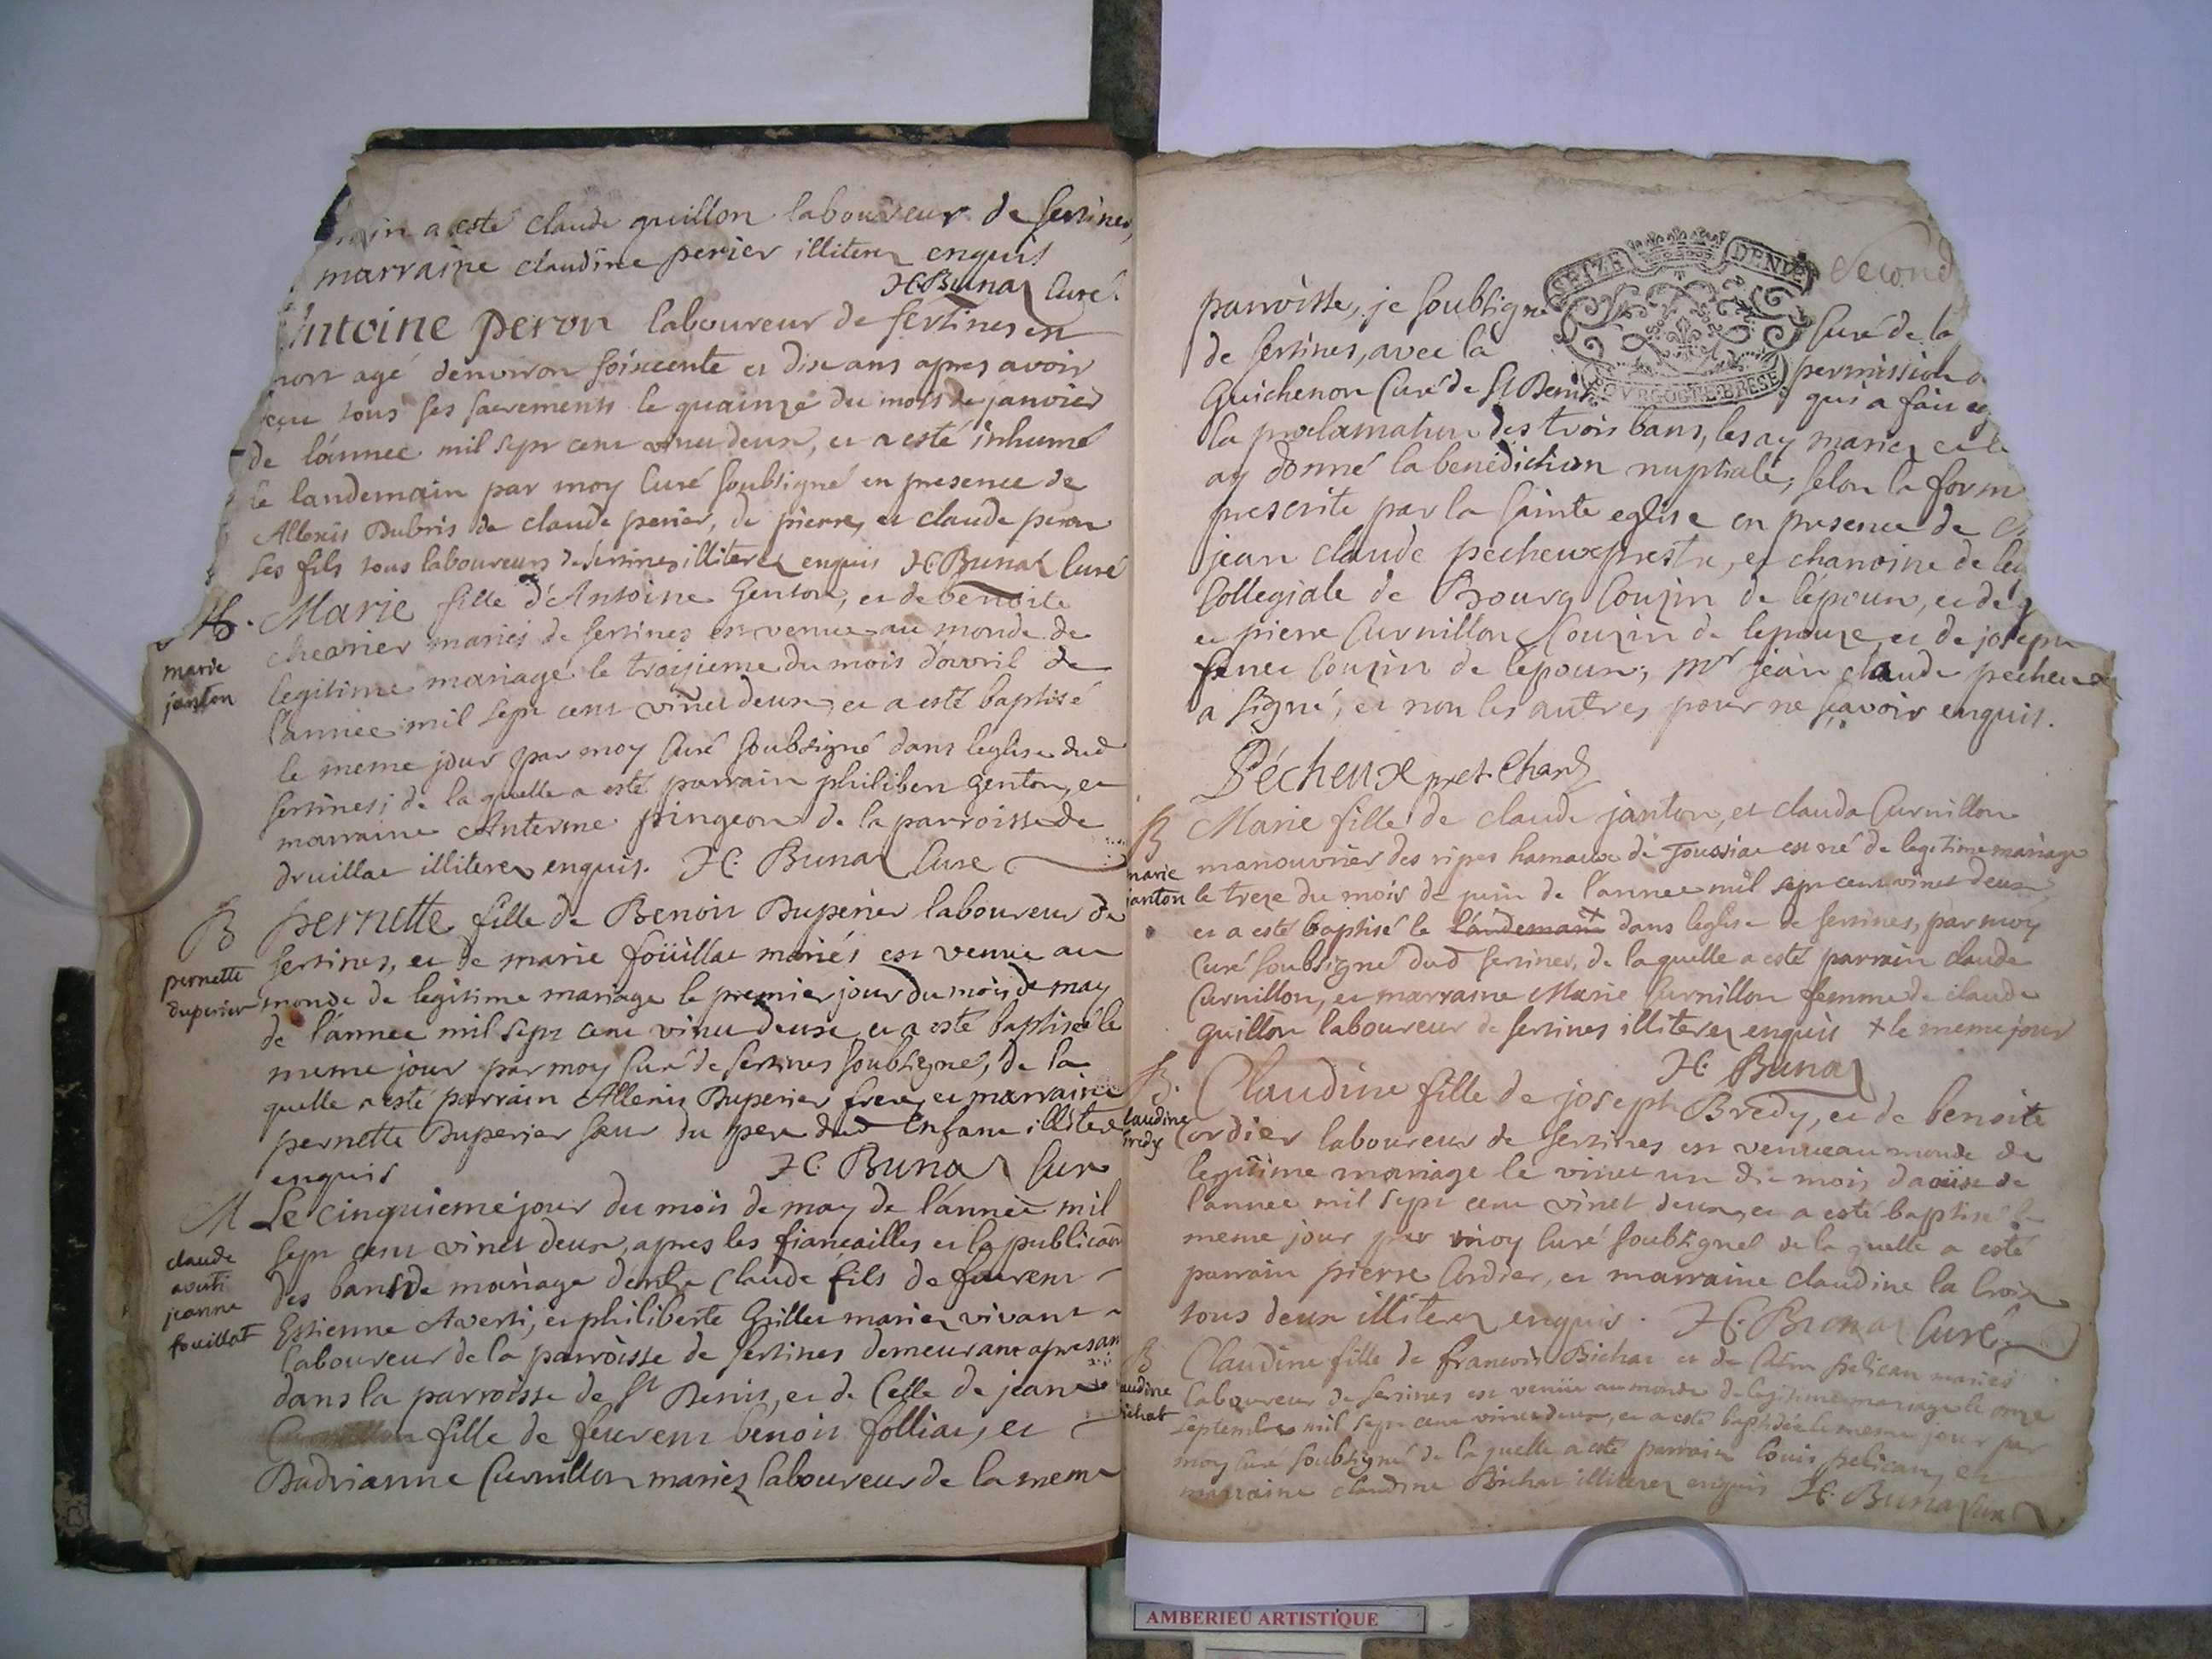 a esté claude guillon laboureur de sersines,
marraine claudine perier illiterez enquis
H. Bunaz Curé
Antoine peron laboureur de sersines est
mort agé denviron soixcente et dix ans apres avoir
receu tous ses sacrements le quainze du mois de janvier
de l'année mil sept cent vinct deux, et a esté inhumé
le landemain par moy Curé soubsigné en presence de
Allexis Dubris de claude perier, de pierre, et claude peron
ses fils tous laboureurs de sersines illiterez enquis H. Bunaz Curé
B. Marie fille d'Antoine Genton, et de benoite
marie
janton
mariés de sersines est venue au monde de
legitime mariage le troisieme du mois d'avril de
l'année mil sept cent vinct deux, et a esté baptisé
le meme jour par moy Curé soubsigné dans leglise dud
sersines; de la quelle a esté parrain philibert genton, et
marraine Anterme pingeon de la parroisse de
druillat illiterez enquis. H. Bunaz Cure
B pernette fille de Benoit Duperier laboureur de
pernette
duperier
sersines, et de marie foüillat mariés est venue au
monde de legitime mariage le premier jour du mois de may
de l'annee mil sept cent vinct deux et a esté baptisée le
meme jour par moy Curé de sersines soubsigné, de la
quelle a esté parrain Allexis Duperier frere, et marraine
pernette Duperier sœur du pere dud Enfant illiterez
enquis H. Bunaz Cure
M Le cinquieme jour du mois de may de l'année mil
claude
averti
jeanne
fouillat
sept cent vinct deux, apres les fiancailles et la publicaon
des bans de mariage d'entre Claude fils de feurent
Estienne Averti, et philiberte Grillet mariez vivant
laboureur de la parroisse de sersines demeurant apresant
dans la parroisse de St Denis, et de Celle de jeane
fille de feurent benoit folliat, et
Dadrianne Curnillon mariez laboureur de la meme
Second
SEIZE DENIERS
BOVRGOGNE BRESE
parroisse, je soubsigné Curé de la
de sersines, avec la permission
Guichenon Curé de St Denis qui a fait
la proclamation des trois bans, les ay mariez et
ay donné la benediction nuptiale, selon la form
prescrite par la sainte eglise en presence de
jean claude pecheux prestre, et chanoine de
Collegiale de Bourg Couzin de l'epoux, et de
et pierre Curnillon Couzin de lepouze, et de joseph
Couzin de lépoux; Mr jean claude pecheux
a signé, et non les autres pour ne sçavoir enquis.
Pécheux pret. Chan
B Marie fille de claude janton, et clauda Curnillon
marie
janton
manouvrier des ripes hamaux de Joussiat est né de legitime mariage
le treze du mois de juin de l'annee mil sept cent vinct deux
et a esté baptisé le landemain + dans leglise de sersines, par moy
Curé soubsigné dud sersines, de laquelle a esté parrain claude
Curnillon, et marraine Marie Curnillon femme de claude
guillon laboureur de sersines illiterez enquis + le meme jour
H. Bunaz
B. Claudine fille de joseph Bredy, et de benoite
claudine
bredy
Cordier laboureur de sersines est venue au monde de
legitime mariage le vinct un du mois daoust de
l'annee mil sept cent vinct deux, et a esté baptisé le
meme jour par moy Curé soubsigné de la quelle a esté
parrain pierre Cordier, et marraine claudine la Croix
tous deux illiterez enquis. H. Bunaz Curé
B Claudine fille de francois Bichat et de pelican mariés
claudine
bichat
laboureur de sersines est venüe au monde de legitime mariage le onze
septembre mil sept cent vinct deux, et a esté baptisée le meme jour par
moy Curé soubsigné de la quelle a esté parrain louis pelican, et
marraine claudine Bichat illiterez enquis H. Bunaz Cure
AMBERIEU ARTISTIQUE